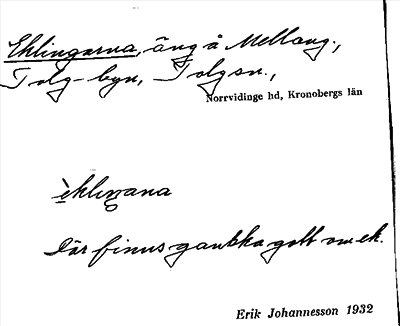 Eklingarna, äng å Mellang.,
Tolg-byn, Tolgsn.,
Norrvidinge hd, Kronobergs län
èklıŋana
Där finns ganska gott om ek.
Erik Johannesson 1932